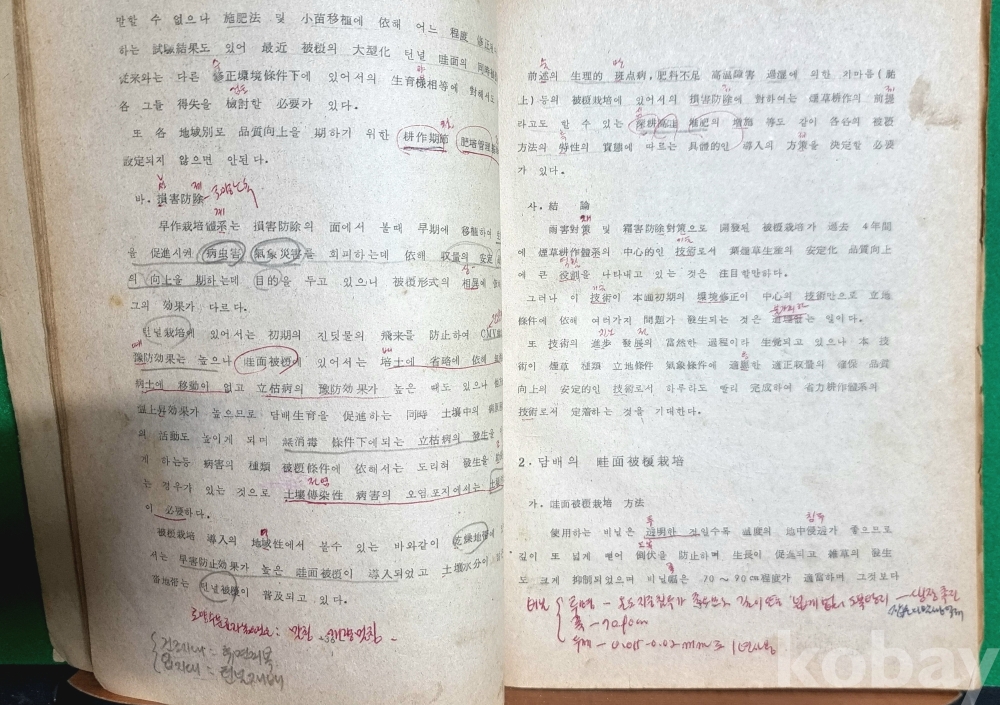 말할 수 없으나 施肥法 및 小苗移植에 依해 어느 程度 修正
하는 試驗結果도 있어 最近 被覆의 大型化 턴널 畦面의 同時
從來와는 다른 修正環境條件下에 있어서의 生育樣相等에 對해서도
각 그들 得失을 檢討할 必要가 있다.
또 各 地域別로 品質向上을 期하기 위한 耕作期節 肥培管理
設定되지 않으면 안된다.
바. 損害防除
早作栽培體系는 損害防除의 面에서 볼때 早期에 移植하여
을 促進시켜 病虫害 氣象災害를 회피하는데 依해 収量의 安定
의 向上을 期하는데 目的을 두고 있으나 被覆形式의 相異에
그의 効果가 다르다.
턴널栽培에 있어서는 初期의 진딧물의 飛來를 防止하여 CMV
豫防効果는 높으나 畦面被覆에 있어서는 培土에 省略에 依해
病土에 移動이 없고 立枯病의 豫防効果가 높은 때도 있으나
温上昇効果가 높으므로 담배生育을 促進하는 同時 土壤中의 病原
의 活動도 높이게 되며 無消毒 條件下에되는 立枯病의 發生을
게 하는등 病害의 種類 被覆條件에 依해서는 도리혀 發生을
는 경우가 있는 것으로 土壤傳染性 病害의 오염포지에서는 土壤
이 必要하다.
被覆栽培 導入의 地域性에서 볼수 있는 바와같이 乾燥地帶에
서는 旱害防止効果가 높은 畦面被覆이 導入되었고 土壤水分이
畓地帶는 턴널被覆이 普及되고 있다.
前述의 生理的 斑点病, 肥料不足 高温障害 過濕에 의한 키마름(騰
上)等의 被覆栽培에 있어서의 損害防除에 對하여는 煙草耕作의 前提
라고도 할 수 있는 深耕 堆肥의 增施 等도 같이 各各의 被覆
方法의 特性의 實態에 따르는 具體的인 導入의 方策을 決定할 必要
가 있다.
사. 結 論
雨害對策 및 霜害防除對策으로 開發된 被覆栽培가 過去 4年間
에 煙草耕作體系의 中心的인 技術로서 葉煙草生產의 安定化 品質向上
에 큰 役割을 나타내고 있는 것은 注目할만하다.
그러나 이 技術이 本畑初期의 環境修正이 中心의 技術만으로 立地
條件에 依해 여러가지 問題가 發生되는 것은 일이다.
또 技術의 進步 發展의 當然한 過程이라 生覺되고 있으나 本 技
術이 煙草 種類 立地條件 氣象條件에 適應한 適正収量의 確保 品質
向上의 安定的인 技術로서 하루라도 빨리 完成하여 省力耕作體系의
技術로서 定着하는 것을 기대한다.
2. 담배의 畦面被覆栽培
가. 畦面被覆栽培 方法
使用하는 비닐은 透明한 것일수록 温度의 地中浸透가 좋으므로
깊이 또 넓게 뻗어 倒伏을 防止하며 生長이 促進되고 雜草의 發生
도 크게 抑制되었으며 비닐幅은 70 ~ 90 cm程度가 適當하며 그것보다
비닐 투명
幅 - 70~90cm
두께 - 0.015-0.02mm로
kobay